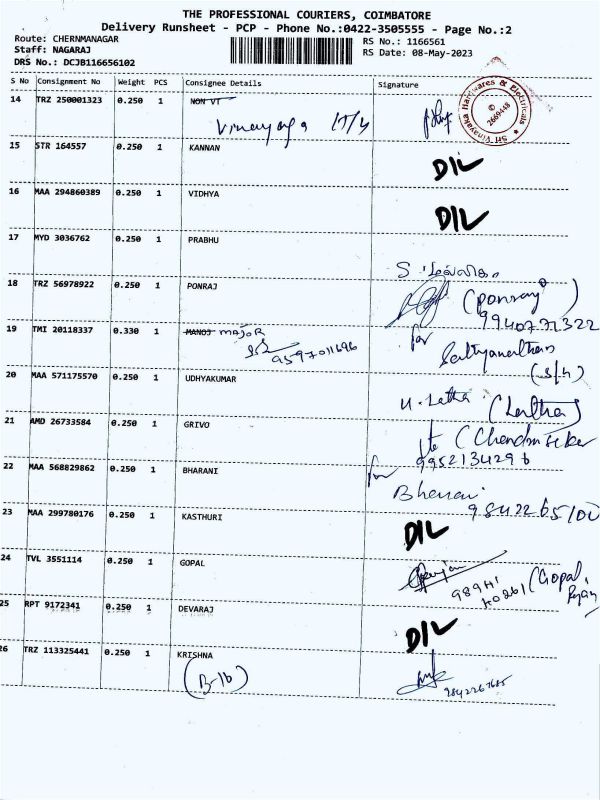 THE PROFESSIONAL COURIERS, COIMBATORE
Delivery Runsheet - PCP - Phone No.:0422-3505555 - Page No.:2
Route: CHERNMANAGAR
Staff: NAGARAJ
DRS No.: DCJB116656102
RS No.: 1166561
RS Date: 08-May-2023
S No Consignment No Weight PCS Consignee Details Signature
14 TRZ 250001323 0.250 1 NON VT
Vinayaga
Sri Vinayaka Hardwares & Electricals
2669448
15 STR 164557 0.250 1 KANNAN D/L
16 MAA 294860389 0.250 1 VIDHYA D/L
17 MYD 3036762 0.250 1 PRABHU
18 TRZ 56978922 0.250 1 PONRAJ (Ponraj)
9940772322
19 TMI 20118337 0.330 1 MANOJ MAJOR for
9597011696
Sathyanathan
(S/H)
20 MAA 571175570 0.250 1 UDHYAKUMAR U. Latha (Latha)
21 AMD 26733584 0.250 1 GRIVO (Chandrasekar
9952134296
22 MAA 568829862 0.250 1 BHARANI for
Bharani
23 MAA 299780176 0.250 1 KASTHURI D/L
24 TVL 3551114 0.250 1 GOPAL (Gopal
25 RPT 9172341 0.250 1 DEVARAJ D/L
26 TRZ 113325441 0.250 1 KRISHNA
(B-16)
9842267685